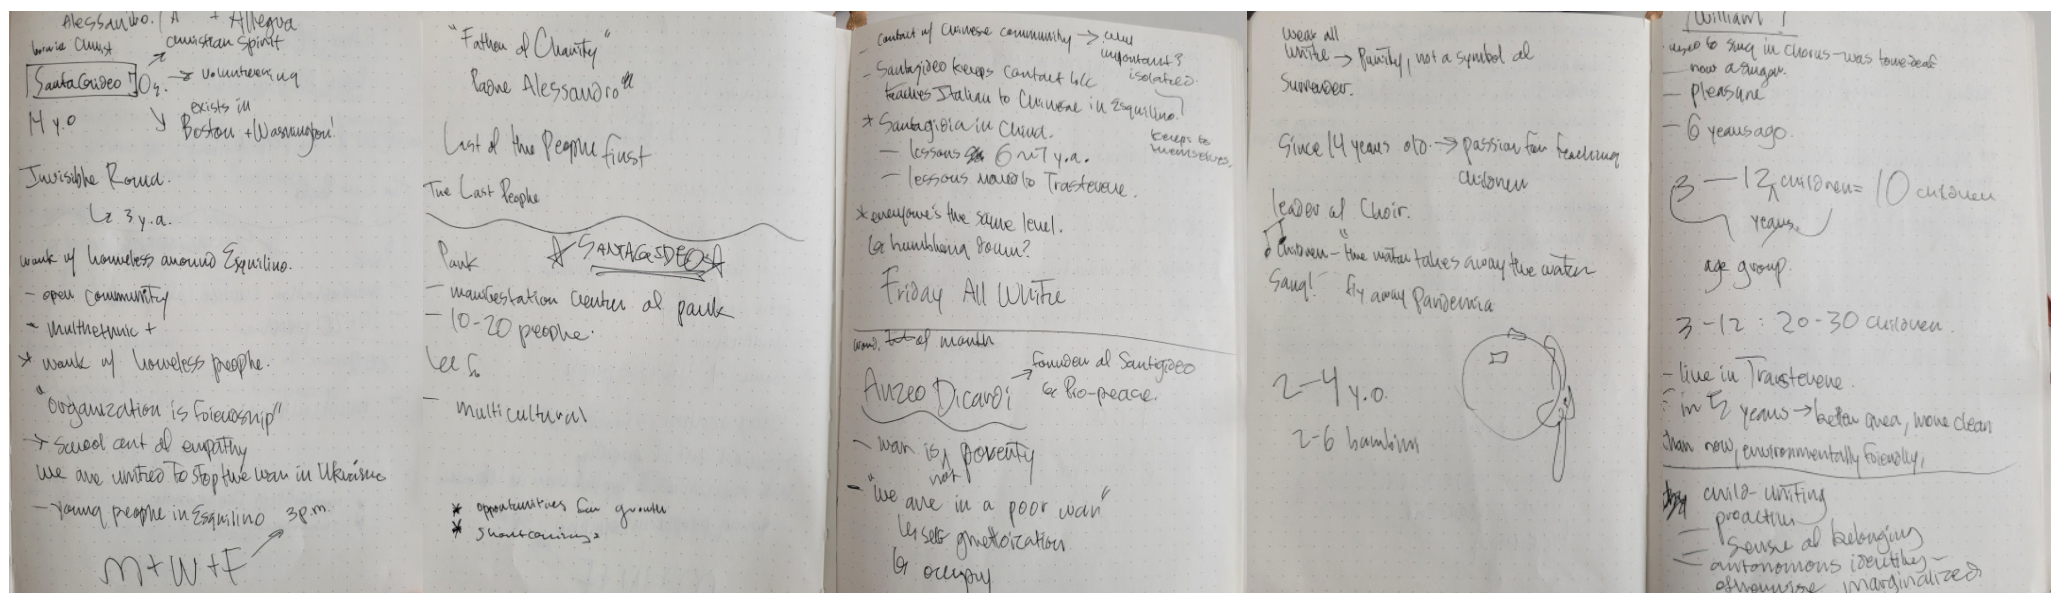 Alessandro. / A + Allegra
Christian Spirit
Santa Egideo Og. → volunteering
14 y.o
exists in
Boston + Washington!
Invisible Round.
↳ 3 y.a.
work w/ homeless around Esquilino.
- open community
- multhethnic +
* work w/ homeless people.
"organization is friendship"
→ School cent of empathy
we are united to stop the war in Ukraine
- Young people in Esquilino 3 p.m.
M+W+F
"Father of Charity"
Padre Alessandro"
Last of the People first
The Last People
☆ SANTAGIDEO ☆
Park
- manifestation center of park
- 10-20 people.
- multicultural
* opportunities for growth
* shortcomings
- contact w/ Chinese community →
important?
isolated.
- Santagideo keeps contact b/c
teaches Italian to Chinese in Esquilino.
* Santagidia in China.
keeps to
themselves.
- lessons 6 or 7 y.a.
- lessons moved to Trastevere.
* everyone's the same level.
↳ humbling down?
Friday All White
of month
Anzeo Dicardi → founder of Santigideo
↳ Pro-peace.
- war is not poverty
- "We are in a poor war"
↳ self ghettoization
↳ occupy
wear all
white → Purity, not a symbol of
Surrender.
Since 14 years old. → passion for teaching
children
leader of Choir.
Children - "the water takes away the water
Sang! fly away Pandemia
2-4 y.o.
2-6 bambini
/William?
. used to sing in chorus - was tone-deaf
- now a singer.
- pleasure
- 6 years ago.
3 - 12 children = 10 children
years.
age group.
3-12 : 20-30 children.
- live in Trastevere.
in 5 years → better area, more clean
than now, environmentally friendly,
child-uniting
proaction
- sense of belonging
- autonomous identity -
otherwise marginalized